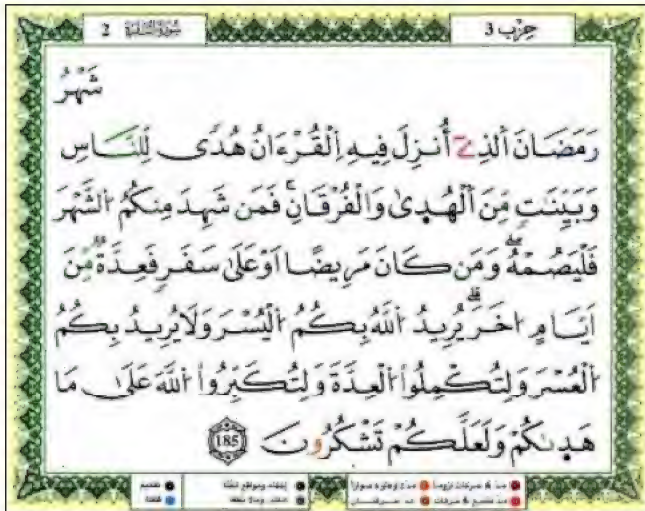 حزب 3
سورة البقرة 2
شَهْرُ
رَمَضَانَ اَ۬لذِےٓ أُنزِلَ فِيهِ اِ۬لْقُرْءَانُ هُدٗى لِّلنَّاسِ
وَبَيِّنَٰتٖ مِّنَ اَ۬لْهُد۪ىٰ وَالْفُرْقَانِۖ فَمَن شَهِدَ مِنكُمُ اُ۬لشَّهْرَ
فَلْيَصُمْهُۖ وَمَن كَانَ مَرِيضاً اَوْ عَلَىٰ سَفَرٖ فَعِدَّةٞ مِّنَ
اَيَّامٍ اُخَرَۖ يُرِيدُ اُ۬للَّهُ بِكُمُ اُ۬لْيُسْرَ وَلَا يُرِيدُ بِكُمُ
اُ۬لْعُسْرَ وَلِتُكْمِلُواْ اُ۬لْعِدَّةَ وَلِتُكَبِّرُواْ اُ۬للَّهَ عَلَىٰ مَا
هَد۪ىٰكُمْ وَلَعَلَّكُمْ تَشْكُرُونَ 185